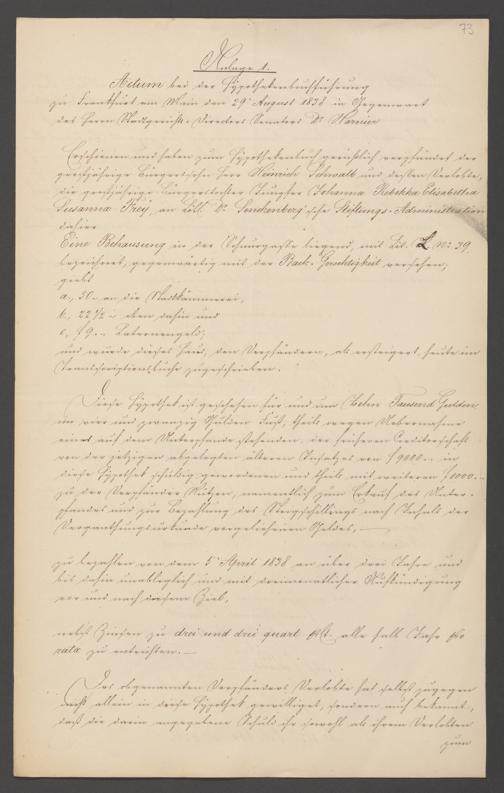 73
Anlage 1.
Actum bei der Hypothekenbuchführung
zu Frankfurt am Main den 29. August 1838 in Gegenwart
des Herrn Stadtgerichts-Directors Senators Dr. Harnier
Erschienen und haben zum Hypothekenbuch gerichtlich verpfändet der
großjährige Bürgerssohn Herr Heinrich Schwalb und dessen Verlobte,
die großjährige Bürgerstochter Jungfer Johanna Rebekka Elisabetha
Susanna Frey, an Löbl. Dr. Senckenberg'sche Stiftungs-Administration
dahier
Eine Behausung in der Schnurgasse liegend, mit Lit. L. No. 29.
bezeichnet, gegenwärtig mit der Back-Gerechtigkeit versehen,
giebt
a., 30 an die Stadtkämmerei,
b., 22 1/2 eben dahin und
c., f 9.. Laternengeld,
und wurde dieses Haus, den Verpfändern, als ersteigert, heute im
Transcriptionsbuche zugeschrieben.
Diese Hypothek ist geschehen für und um Zehn Tausend Gulden
im vier und zwanzig Gulden Fuß, theils wegen Uebernahme
einer auf dem Unterpfande stehenden, der früheren Creditorschaft
von der jetzigen abgelegten älteren Insatzes von f 9000.. in
diese Hypothek schuldig gewordenen und theils mit weiteren f 1000..
zu der Verpfänder Nutzen, namentlich zum Erkauf des Unter-
pfandes und zur Bezahlung des Steigschillings nach Inhalt der
Verganthungsurkunde vorgeliehenen Geldes,
zu bezahlen von dem 5. April 1838 an über drei Jahre und
bis dahin unableglich und mit dreimonatlicher Aufkündigung
vor und nach diesem Ziel,
nebst Zinsen zu drei und drei quart pCt. alle halb Jahr pro
rata zu entrichten.
Des obgenannten Verpfänders Verlobte hat selbst zugegen
nicht allein in diese Hypothek gewilliget, sondern auch bekannt,
daß die darin angegebene Schuld ihr sowohl als ihrem Verlobten
zum